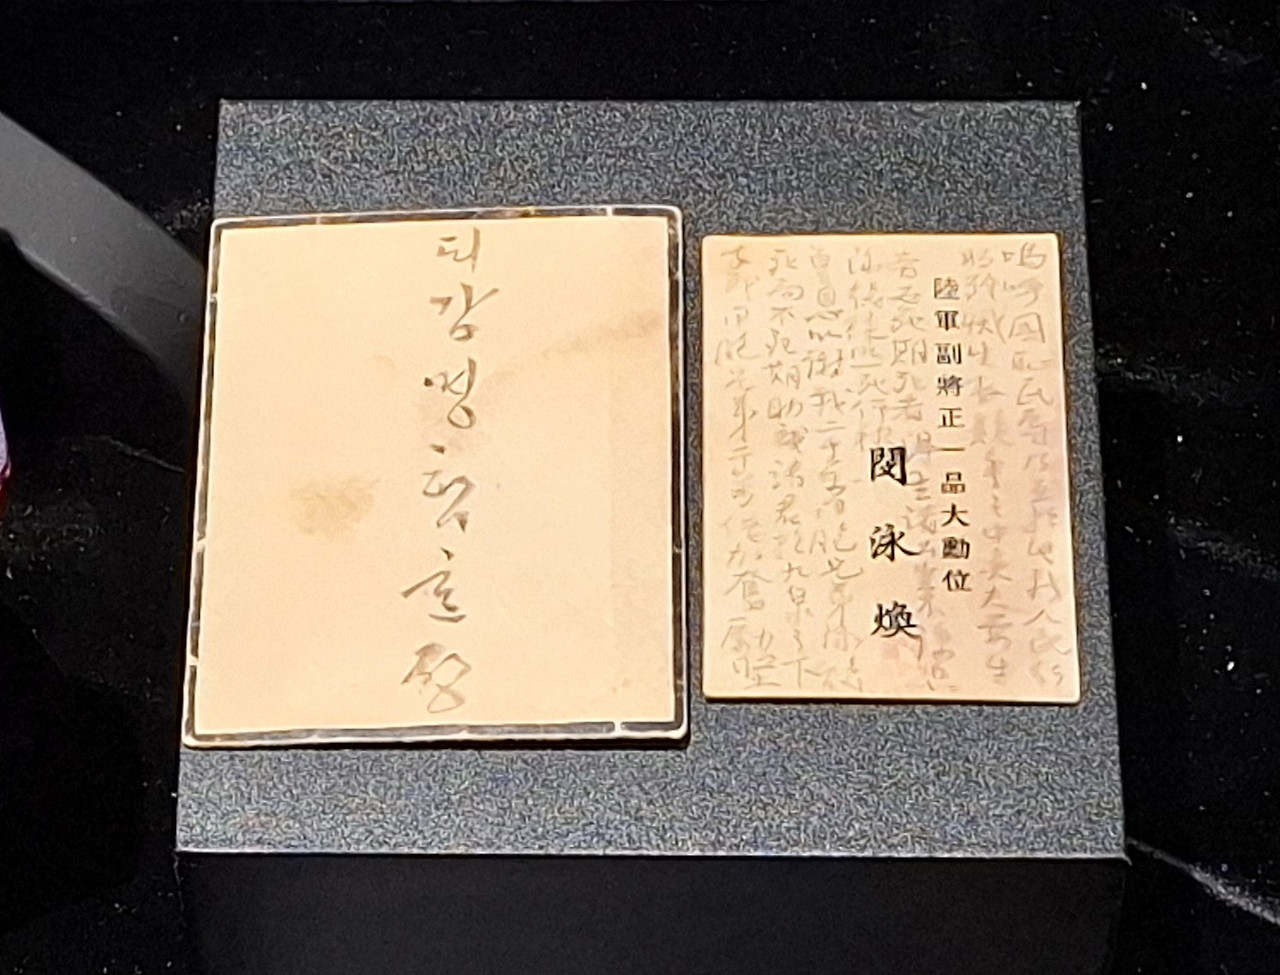 ᄃᆡ감명함ᄒᆞᆫ쟝
嗚呼國恥民辱乃至於此我人民行
將殄滅生存競爭之中矣夫要生
陸軍副將正一品大勳位
者必死期死者得生諸公
閔泳煥
泳煥徒以一死仰報
皇恩以謝我二千萬同胞兄弟泳煥
死而不死期助我諸君於九泉之下
幸我同胞兄弟千萬倍加奮勵堅